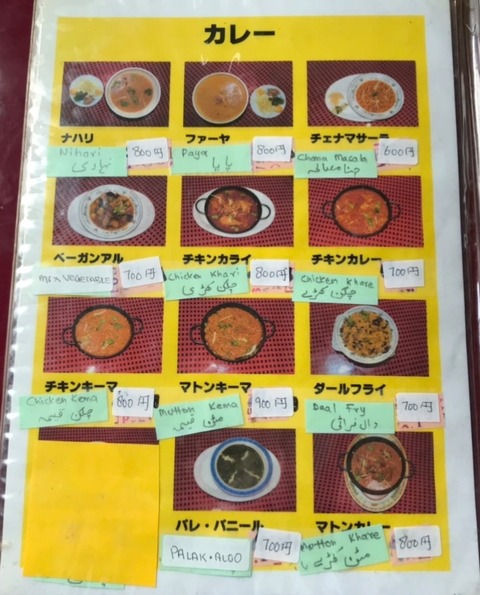 カレー
ナハリ
ファーヤ
チェナマサーラ
Nihari
نہاری
800円
Paya
پایا
800円
Chana Masala
600円
ベーガンアル
チキンカライ
チキンカレー
MIX VEGETABLE
700円
Chicken Khari
چکن کڑی
800円
Chicken Khare
700円
チキンキーマ
マトンキーマ
ダールフライ
Chicken Kema
چکن قیمہ
800円
Mutton Kema
مٹن قیمہ
900円
Daal Fry
دال فرائی
700円
パレ・パニール
マトンカレー
PALAK・ALOO
700円
Motton Khare
800円